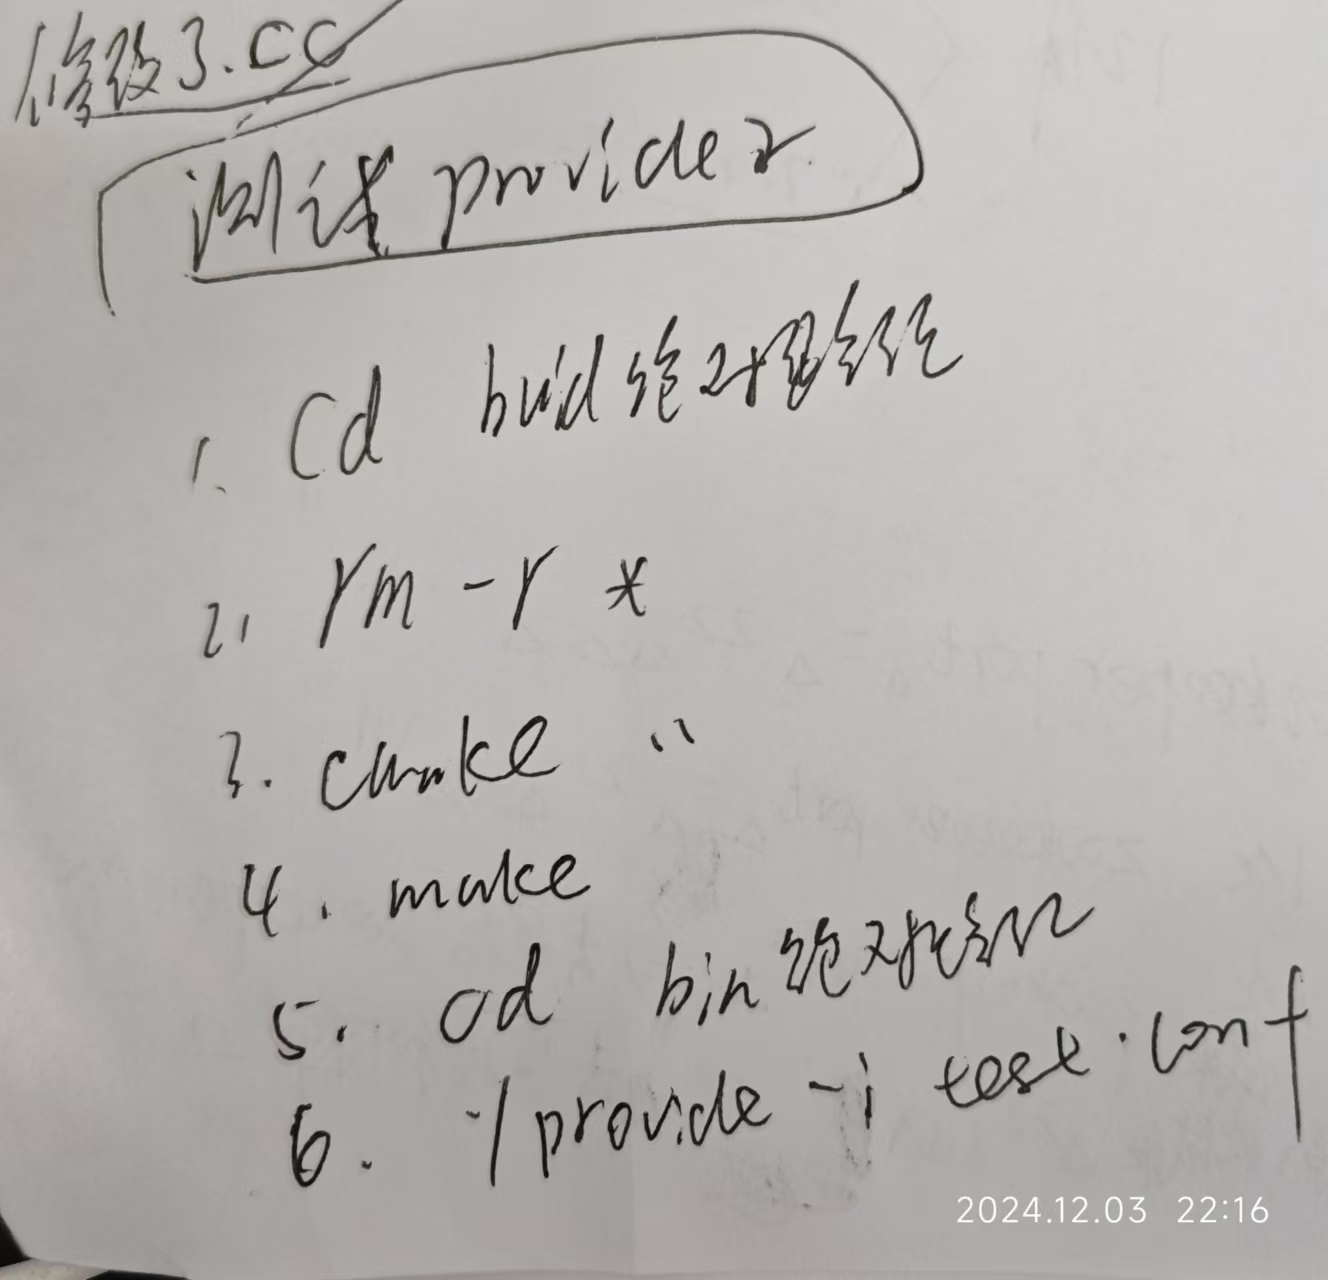 修改了.cc
测试 provider
1. cd build绝对路径
2. rm -r *
3. cmake ..
4. make
5. cd bin绝对路径
6. ./provide -i test.conf
2024.12.03 22:16